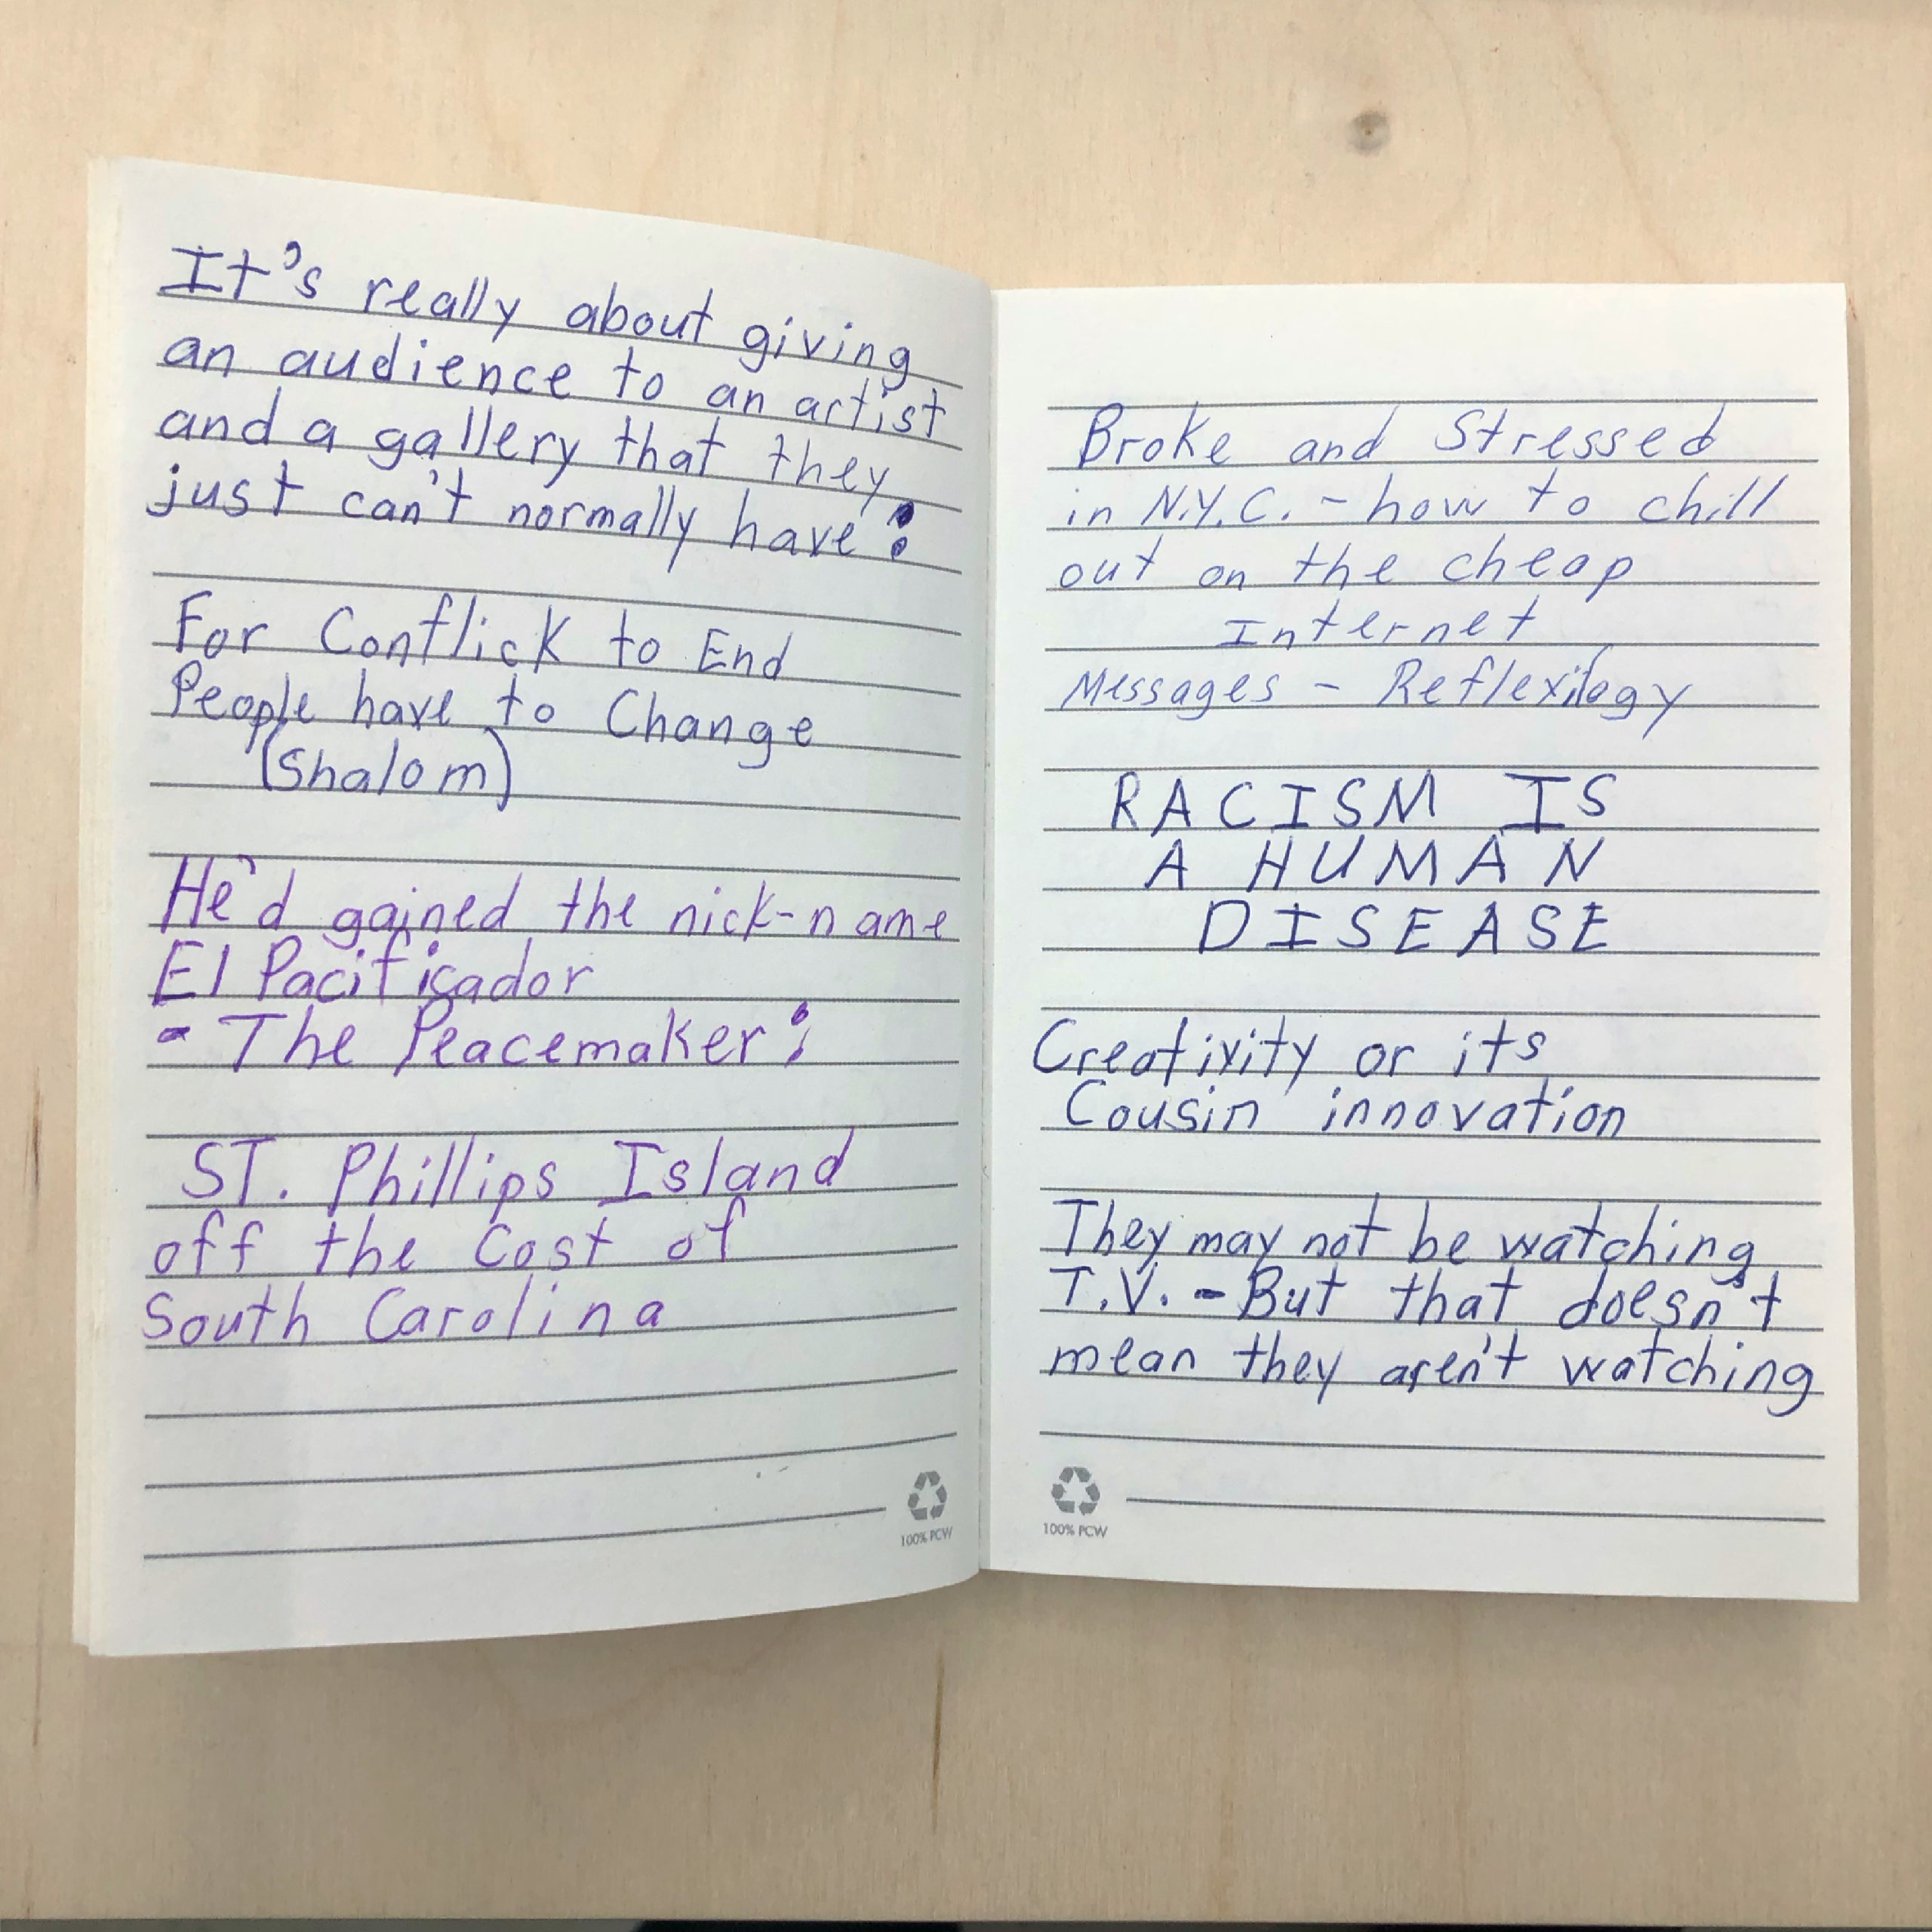 It's really about giving
an audience to an artist
and a gallery that they
just can't normally have:
For Conflick to End
People have to Change
(Shalom)
He'd gained the nick-name
El Pacificador
- The Peacemaker;
ST. Phillips Island
off the Cost of
South Carolina
100% PCW
Broke and Stressed
in N.Y.C. - how to chill
out on the cheap
Internet
Messages - Reflexilogy
RACISM IS
A HUMAN
DISEASE
Creativity or its
Cousin innovation
They may not be watching
T.V. - But that doesn't
mean they aren't watching
100% PCW